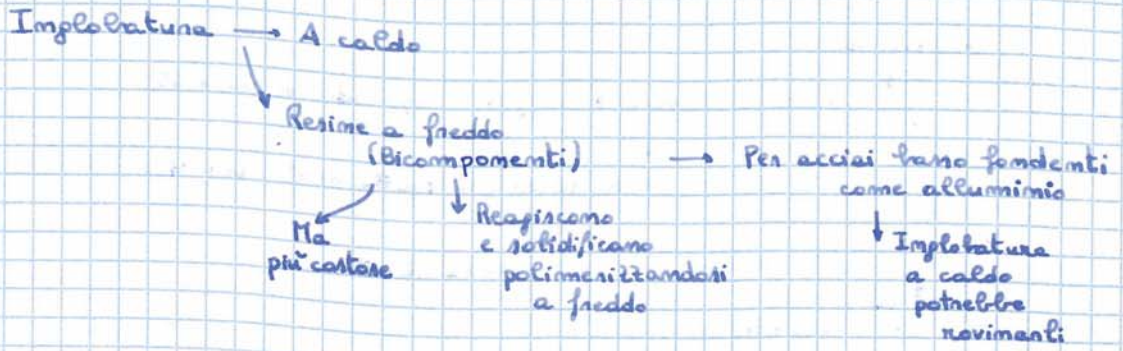 Inglobatura → A caldo
Resine a freddo
(Bicomponenti) → Per acciai basso fondenti
come alluminio
Ma
più costose
Reagiscono
e solidificano
polimerizzandosi
a freddo
Inglobatura
a caldo
potrebbe
rovinarli